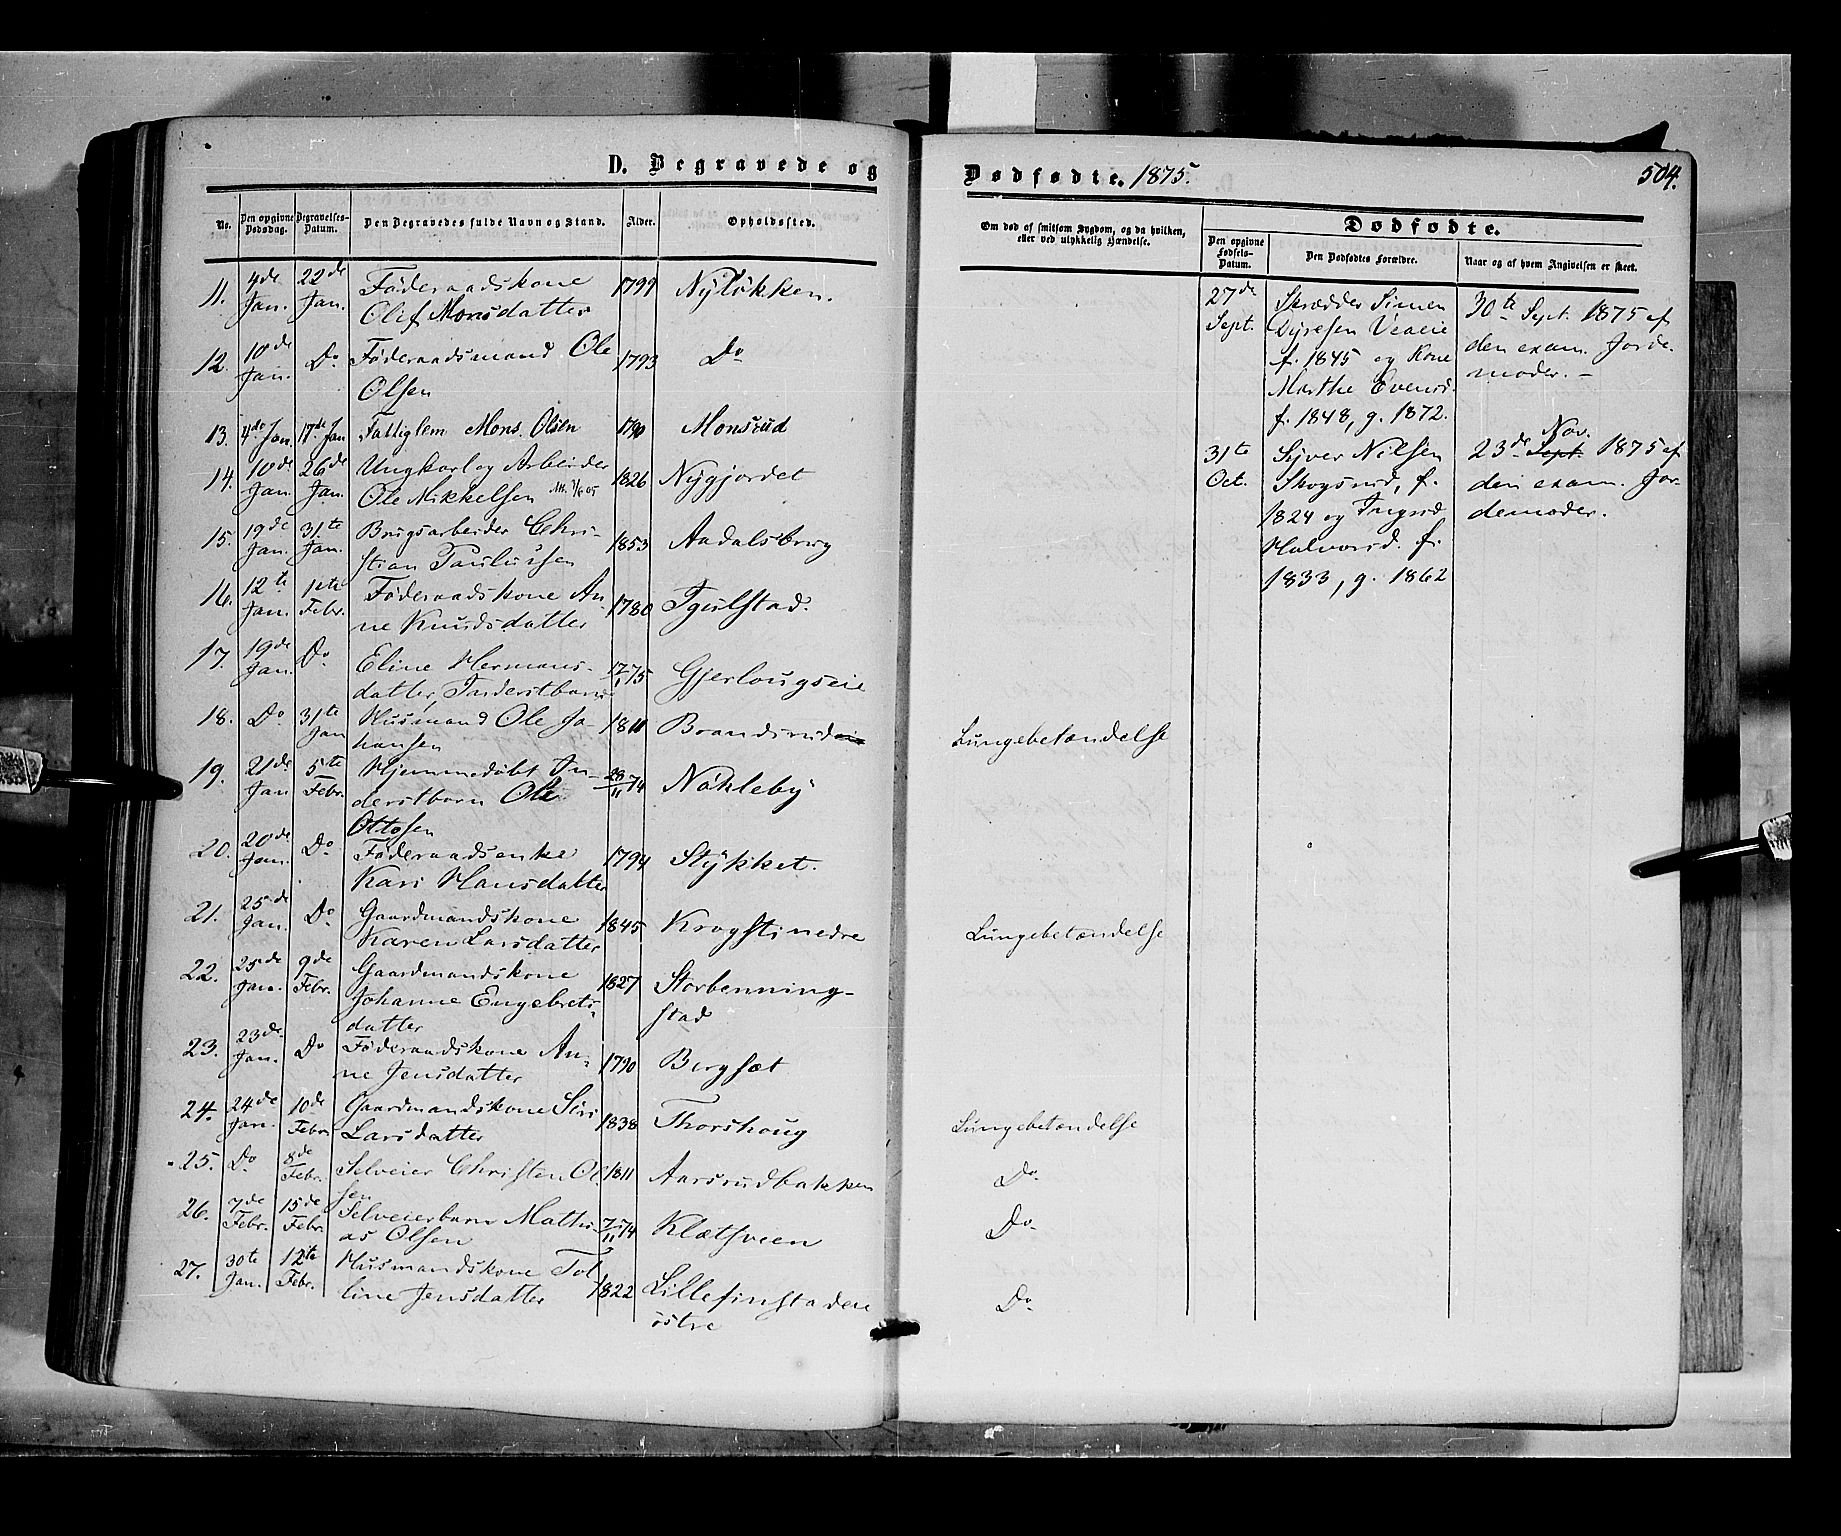 D. Begravede og
Dødfødte. 1875.
504.
No.
Den opgivne Dødsdag.
Begravelses-Datum.
Den Begravedes fulde Navn og Stand.
Alder.
Opholdssted.
Om død af smitsom Sygdom, og da hvilken, eller ved ulykkelig Hændelse.
Dødfødte.
Den opgivne Fødsels-Datum.
Den Dødfødtes Forældre.
Naar og af hvem Angivelsen er skeet.
11. 4de Jan. 22de Jan. Föderaadskone 1799 Nyløkken.
Olif Monsdatter
12. 10de Jan. Do Föderaadsmand Ole 1793 Do
Olsen
13. 4de Jan. 17de Jan Fattiglem Mons Olsen 1790 Monsrud
14. 10de Jan. 26de Jan. Ungkarl og Arbeider 1826 Nygjordet
Ole Mikkelsen
15. 19de Jan. 31te Jan. Brugsarbeider Chri- 1853 Aadalsbrug
stian Paulussen
16. 12te Jan. 1ste Febr. Föderaadskone An- 1780 Tjulstad.
ne Knudsdatter
17. 19de Jan. Do Eline Hermans- 17/1 75 Gjerlougseie
datter, Inderstbarn
18. Do 31te Jan Husmand Ole Jo- 1811 Brandsrud Lungebetændelse
hansen
19. 21de Jan 5te Febr. Hjemmedöbt In- 28/11 74 Nökleby
derstbarn Ole
Ottosen
20. 20de Jan. Do Föderaadsenke 1794 Stykket.
Kari Hansdatter
21. 25de Jan. Do Gaardmandskone 1845 Krogsti nedre Lungebetændelse
Karen Larsdatter
22. 25de Jan. 9de Febr. Gaardmandskone 1827 Storbenning-
Johanne Engebrets- stad
datter
23. 23de Jan. Do Föderaadskone An- 1790 Bergsæt
ne Jensdatter
24. 24de Jan. 10de Febr. Gaardmandskone Siri 1838 Thorshoug Lungebetændelse
Larsdatter
25. Do 8de Febr. Selveier Christen Ol- 1811 Aarsrudbakken Do
sen
26. 7de Febr. 15de Febr. Selveierbarn Mathi- 7/11 74 Klætsveen Do
as Olsen
27. 30te Jan. 12te Febr. Husmandskone Tol 1822 Lillefinstadeie Do
line Jensdatter östre
27de Sept. Skrædder Simen
Dyresen Veaeie
f. 1845 og Kone
Marthe Evensd.
f. 1848, g. 1872.
30te Sept. 1875 af
den exam. Jorde-
moder. –
31te Oct. Syver Nilsen
Skogsrud, f.
1824 og Ingrid
Halvorsd. f.
1833, g. 1862
Nov.
23de Sept. 1875 af
den exam. Jor-
demoder.